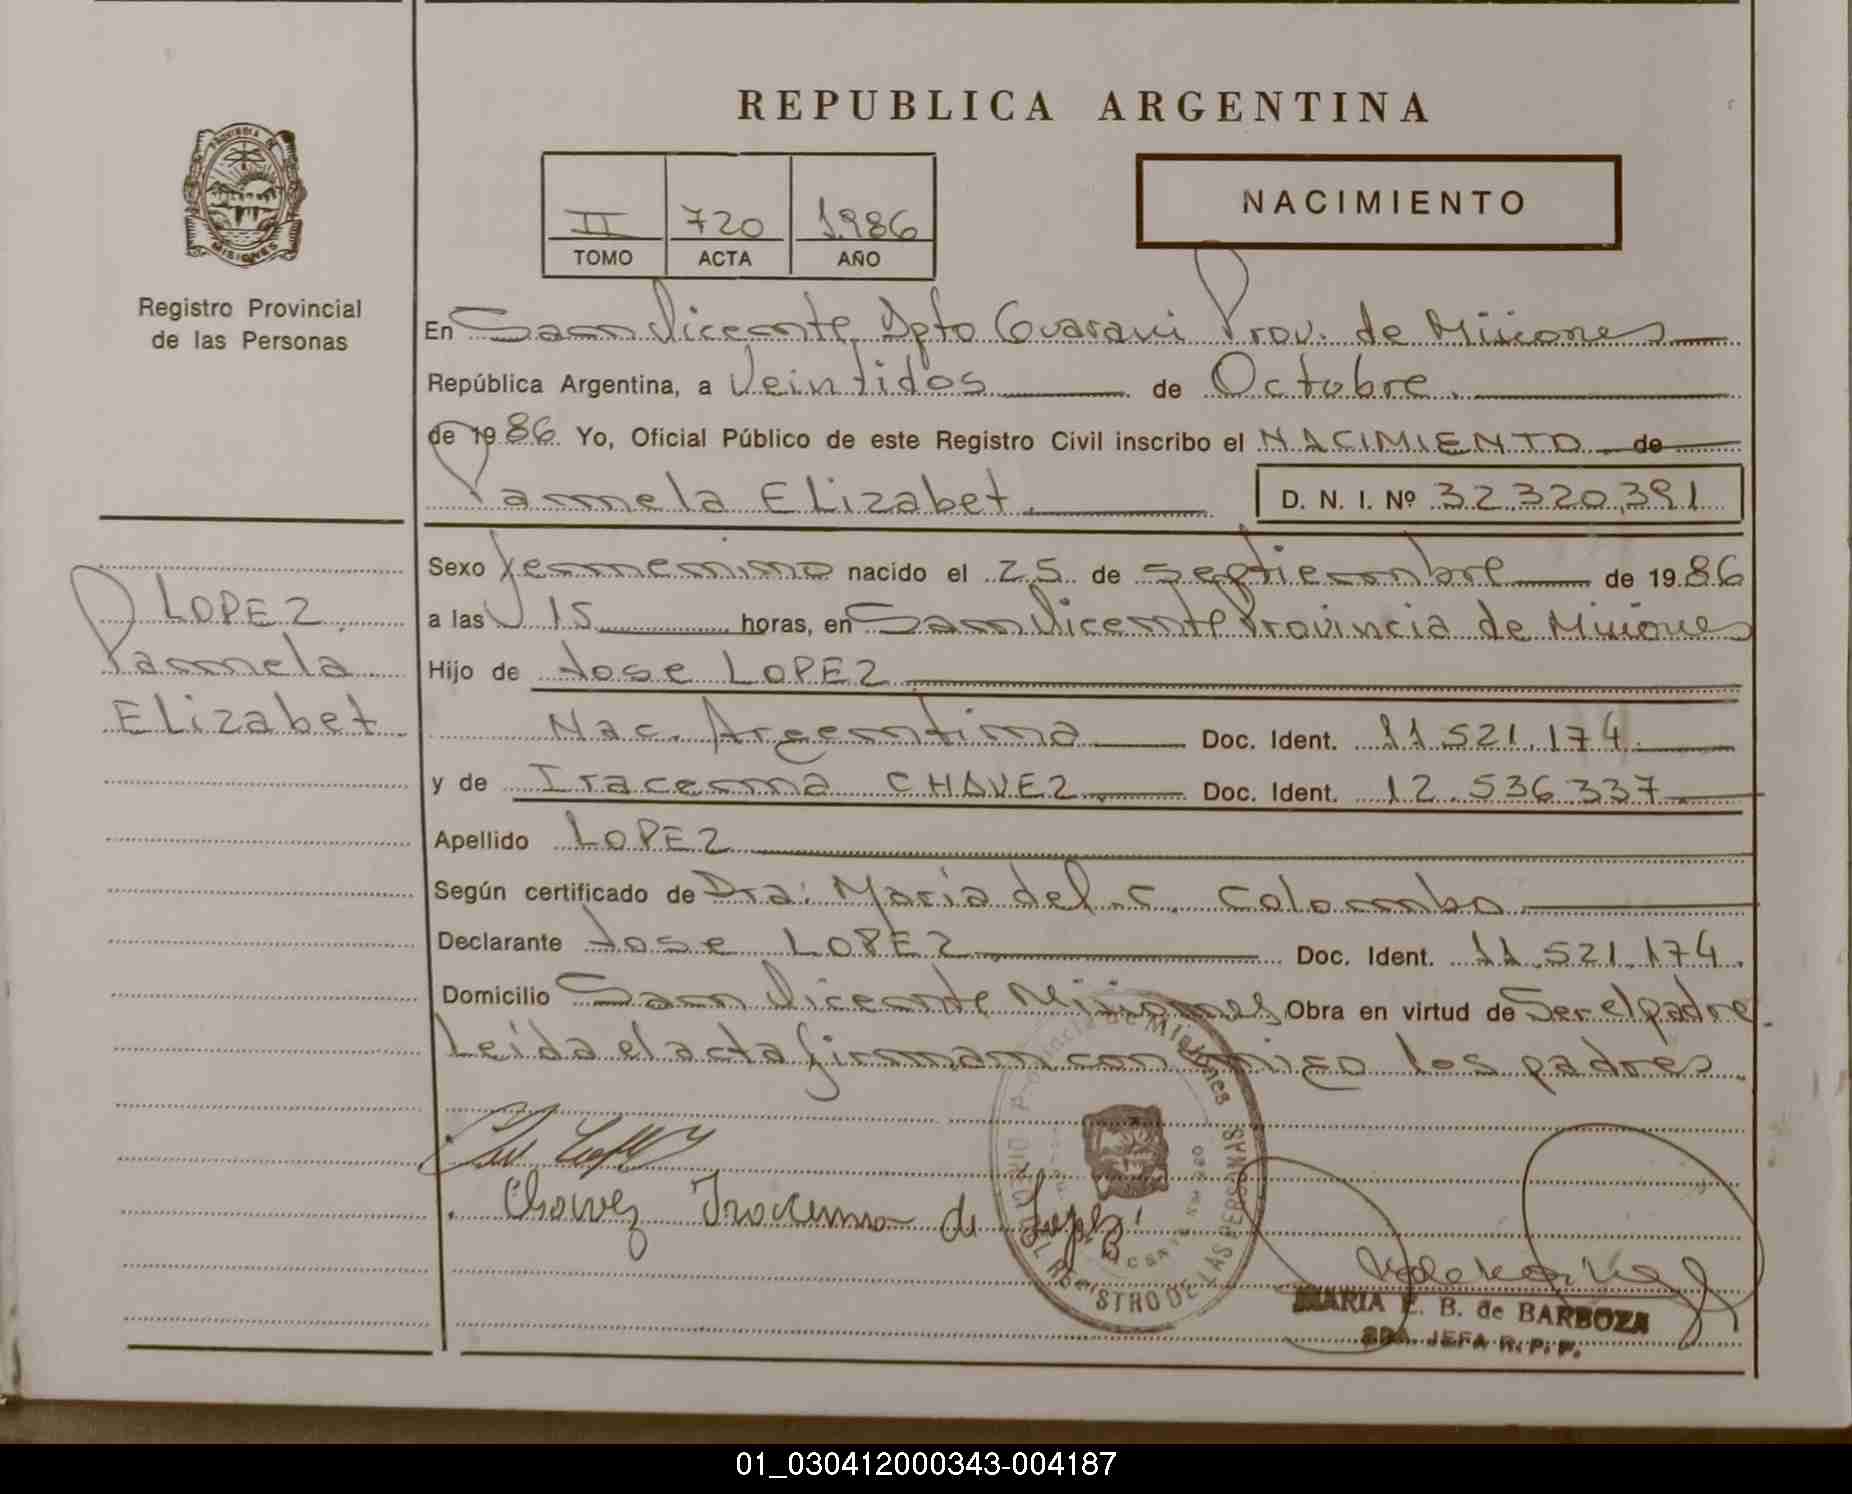 REPUBLICA ARGENTINA
PROVINCIA DE
MISIONES
Registro Provincial
de las Personas
II 720 1986
TOMO ACTA AÑO
NACIMIENTO
En San Vicente Dpto Guarani Prov. de Misiones
República Argentina, a Veintidos de Octubre.
de 1986 Yo, Oficial Público de este Registro Civil inscribo el NACIMIENTO de
Pamela ELizabet. D. N. I. Nº 32.320.391
LOPEZ.
Pamela
ELizabet.
Sexo femenino nacido el 25 de septiembre de 1986
a las 15 horas, en San Vicente Provincia de Misiones
Hijo de Jose LOPEZ
Nac. Argentina Doc. Ident. 11.521.174.
y de Iracema CHAVEZ Doc. Ident. 12.536.337
Apellido LOPEZ
Según certificado de Dra: Maria del C. Colombo
Declarante Jose LOPEZ Doc. Ident. 11.521.174.
Domicilio San Vicente Misiones Obra en virtud de Ser el padre.
Leida el acta firman conmigo los padres
Chavez Iracema de Lopez
Provincia de Misiones
REGISTRO DE LAS PERSONAS
MARIA E. B. de BARBOZA
SDA. JEFA R. P. P.
01_030412000343-004187